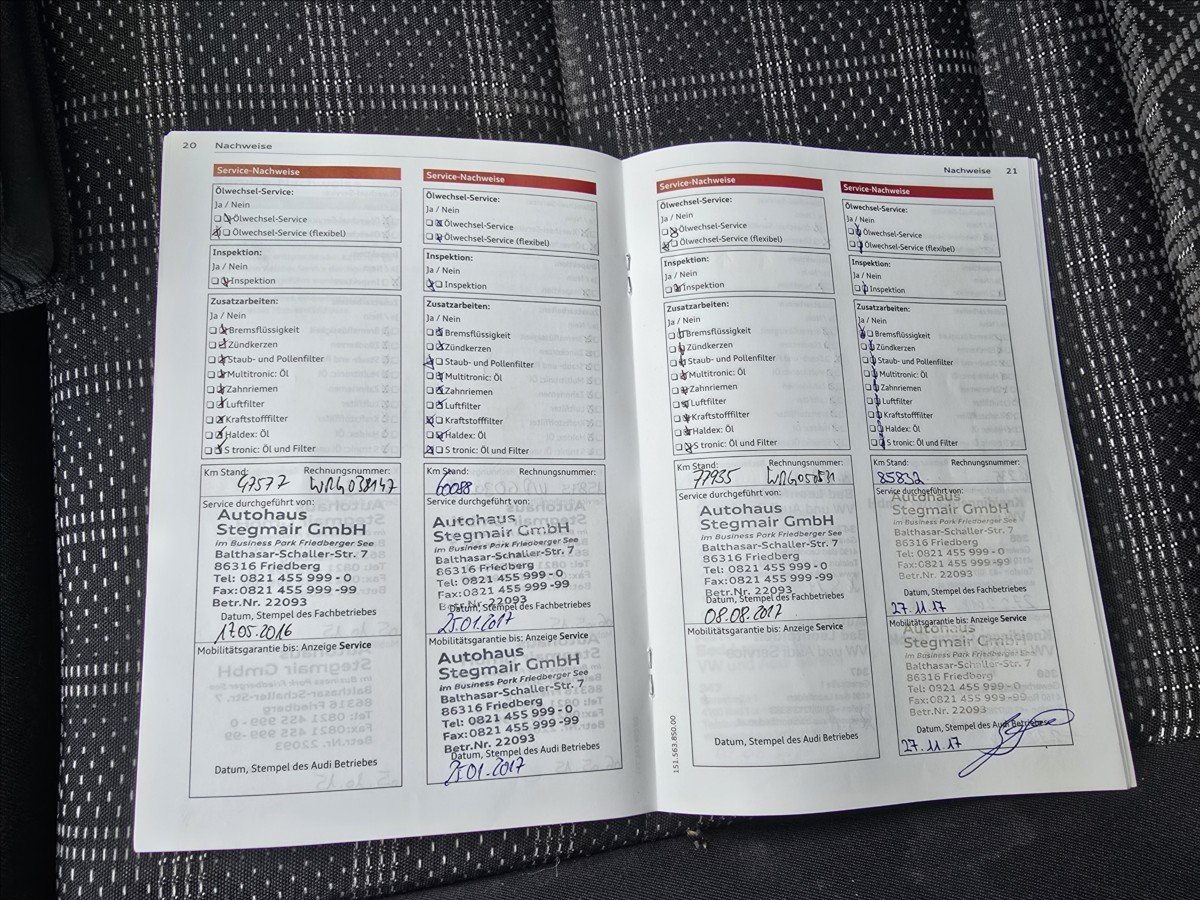 20 Nachweise
Service-Nachweise
Ölwechsel-Service:
Ja / Nein
Ölwechsel-Service
Ölwechsel-Service (flexibel)
Inspektion:
Ja / Nein
Inspektion
Zusatzarbeiten:
Ja / Nein
Bremsflüssigkeit
Zündkerzen
Staub- und Pollenfilter
Multitronic: Öl
Zahnriemen
Luftfilter
Kraftstofffilter
Haldex: Öl
S tronic: Öl und Filter
Km Stand: Rechnungsnummer:
47577
Service durchgeführt von:
Autohaus
Stegmair GmbH
im Business Park Friedberger See
Balthasar-Schaller-Str. 7
86316 Friedberg
Tel: 0821 455 999 - 0
Fax: 0821 455 999 -99
Betr.Nr. 22093
Datum, Stempel des Fachbetriebes
17.05.2016
Mobilitätsgarantie bis: Anzeige Service
Datum, Stempel des Audi Betriebes
Service-Nachweise
Ölwechsel-Service:
Ja / Nein
Ölwechsel-Service
Ölwechsel-Service (flexibel)
Inspektion:
Ja / Nein
Inspektion
Zusatzarbeiten:
Ja / Nein
Bremsflüssigkeit
Zündkerzen
Staub- und Pollenfilter
Multitronic: Öl
Zahnriemen
Luftfilter
Kraftstofffilter
Haldex: Öl
S tronic: Öl und Filter
Km Stand: Rechnungsnummer:
60088
Service durchgeführt von:
Autohaus
Stegmair GmbH
im Business Park Friedberger See
Balthasar-Schaller-Str. 7
86316 Friedberg
Tel: 0821 455 999 - 0
Fax: 0821 455 999 -99
Betr.Nr. 22093
Datum, Stempel des Fachbetriebes
25.01.2017
Mobilitätsgarantie bis: Anzeige Service
Autohaus
Stegmair GmbH
im Business Park Friedberger See
Balthasar-Schaller-Str. 7
86316 Friedberg
Tel: 0821 455 999 - 0
Fax: 0821 455 999 -99
Betr.Nr. 22093
Datum, Stempel des Audi Betriebes
25.01.2017
Nachweise 21
Service-Nachweise
Ölwechsel-Service:
Ja / Nein
Ölwechsel-Service
Ölwechsel-Service (flexibel)
Inspektion:
Ja / Nein
Inspektion
Zusatzarbeiten:
Ja / Nein
Bremsflüssigkeit
Zündkerzen
Staub- und Pollenfilter
Multitronic: Öl
Zahnriemen
Luftfilter
Kraftstofffilter
Haldex: Öl
S tronic: Öl und Filter
Km Stand: Rechnungsnummer:
77955
Service durchgeführt von:
Autohaus
Stegmair GmbH
im Business Park Friedberger See
Balthasar-Schaller-Str. 7
86316 Friedberg
Tel: 0821 455 999 - 0
Fax: 0821 455 999 -99
Betr.Nr. 22093
Datum, Stempel des Fachbetriebes
08.08.2017
Mobilitätsgarantie bis: Anzeige Service
Datum, Stempel des Audi Betriebes
151.563.850.00
Service-Nachweise
Ölwechsel-Service:
Ja / Nein
Ölwechsel-Service
Ölwechsel-Service (flexibel)
Inspektion:
Ja / Nein
Inspektion
Zusatzarbeiten:
Ja / Nein
Bremsflüssigkeit
Zündkerzen
Staub- und Pollenfilter
Multitronic: Öl
Zahnriemen
Luftfilter
Kraftstofffilter
Haldex: Öl
S tronic: Öl und Filter
Km Stand: Rechnungsnummer:
85832
Service durchgeführt von:
Autohaus
Stegmair GmbH
im Business Park Friedberger See
Balthasar-Schaller-Str. 7
86316 Friedberg
Tel: 0821 455 999 - 0
Fax: 0821 455 999 -99
Betr.Nr. 22093
Datum, Stempel des Fachbetriebes
27.11.17
Mobilitätsgarantie bis: Anzeige Service
Autohaus
Stegmair GmbH
im Business Park Friedberger See
Balthasar-Schaller-Str. 7
86316 Friedberg
Tel: 0821 455 999 - 0
Fax: 0821 455 999 -99
Betr.Nr. 22093
Datum, Stempel des Audi Betriebes
27.11.17